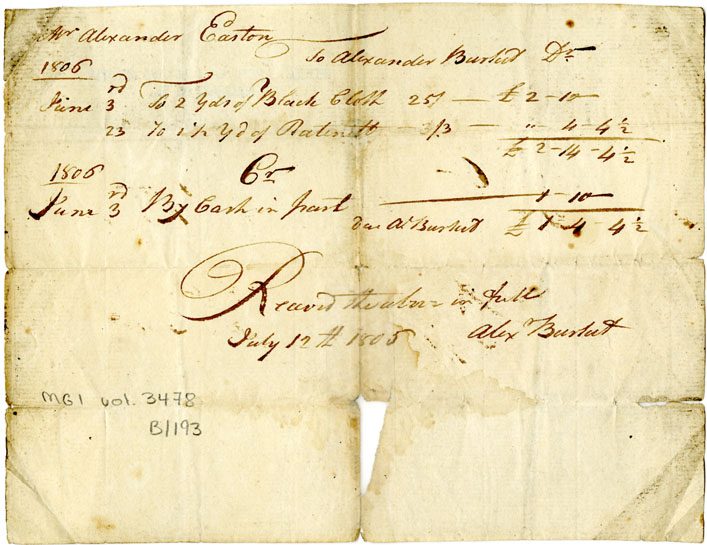 Mr Alexander Easton
To Alexander Burket Dr
1806
June 3rd To 2 Yds of Black Cloth 25/ — £ 2 - 10
23 To 1 1/4 Yd of Ratinett — 3/3 — " 4 - 4 1/2
£ 2 - 14 - 4 1/2
1806 Cr
June 3rd By Cash in part 1 - 10
due Al Burket £ 1 - 4 - 4 1/2
Receved the above in full
July 12th 1806 Alexr Burket
MG1 vol. 3478
B/193